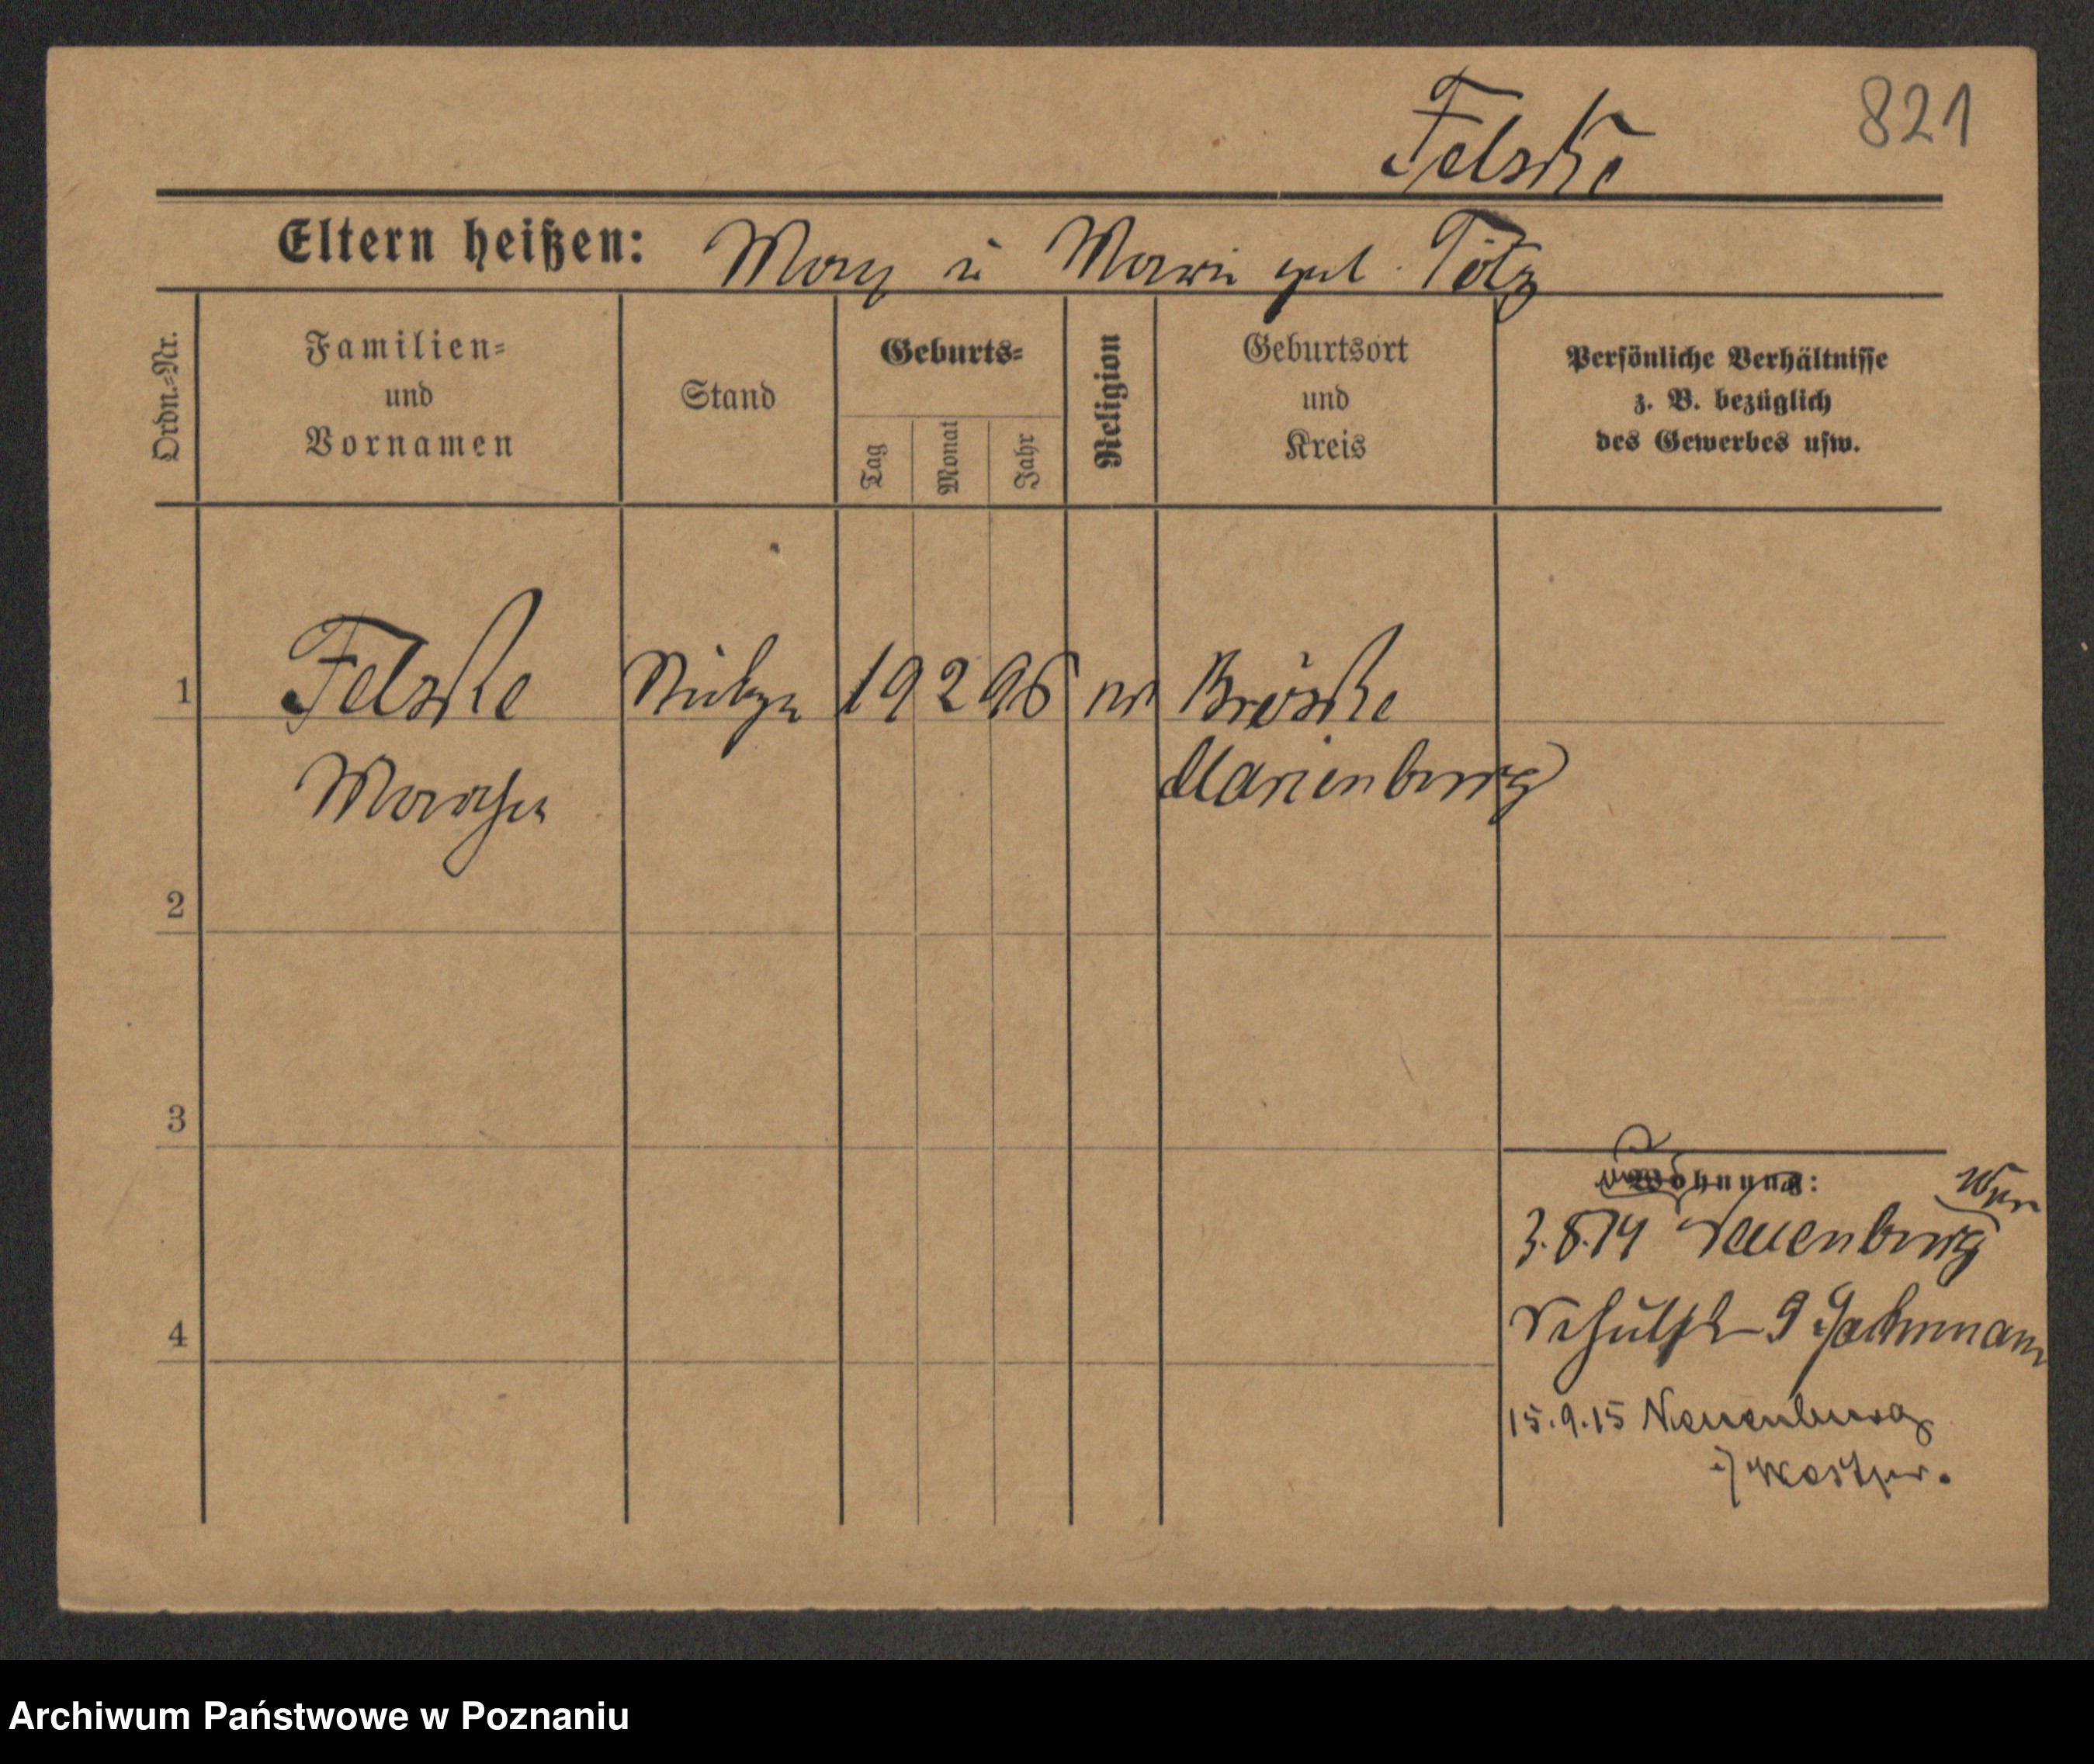 821
Felske
Eltern heißen: Max u Marie geb. Tötz
Ordn.=Nr.
Familien=
und
Vornamen
Stand
Geburts=
Tag
Monat
Jahr
Religion
Geburtsort
und
Kreis
Persönliche Verhältnisse
z. B. bezüglich
des Gewerbes usw.
1 Felske Stütze 19 2 96 Bröske
Marienburg
2
3
4
Wohnung:
3.8.14 Neuenburg Wpr
9 Jachmann
15.9.15 Neuenburg
i/Westpr.
Archiwum Państwowe w Poznaniu